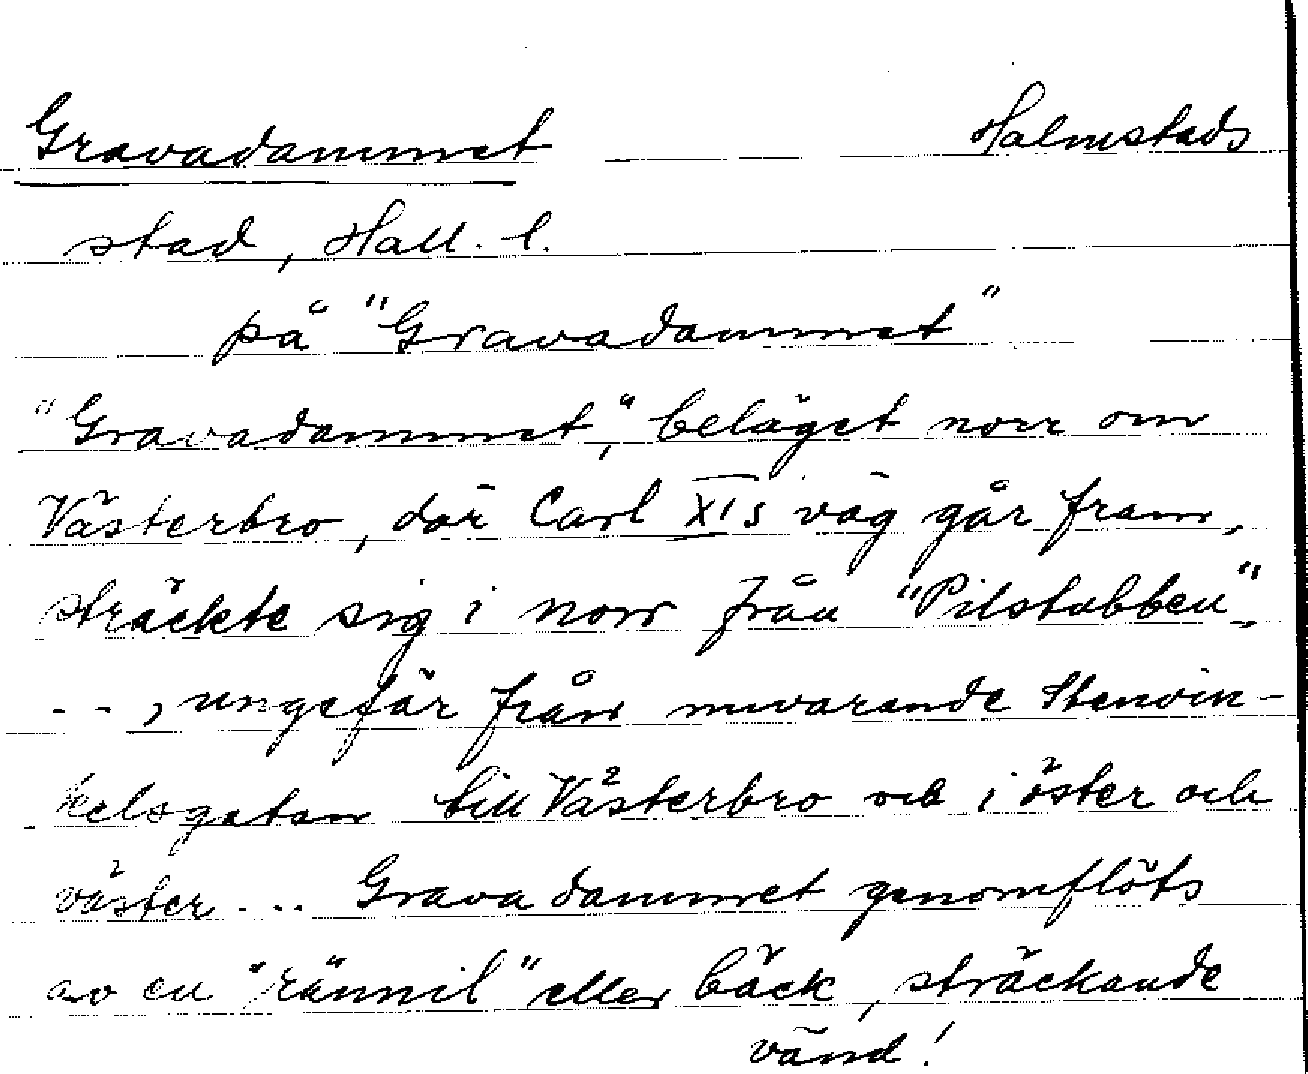 Gravadammet Halmstads
stad, Hall. l.
på "Gravadammet"
"Gravadammet", beläget norr om
Västerbro, där Carl XIs väg går fram,
sträckte sig i norr från "Pilstubben"-
- - , ungefär från nuvarande Stenvin-
kelsgatan till Västerbro och i öster och
väster ... Gravadammet genomflöts
av en "rännil" eller bäck, sträckande
vänd!